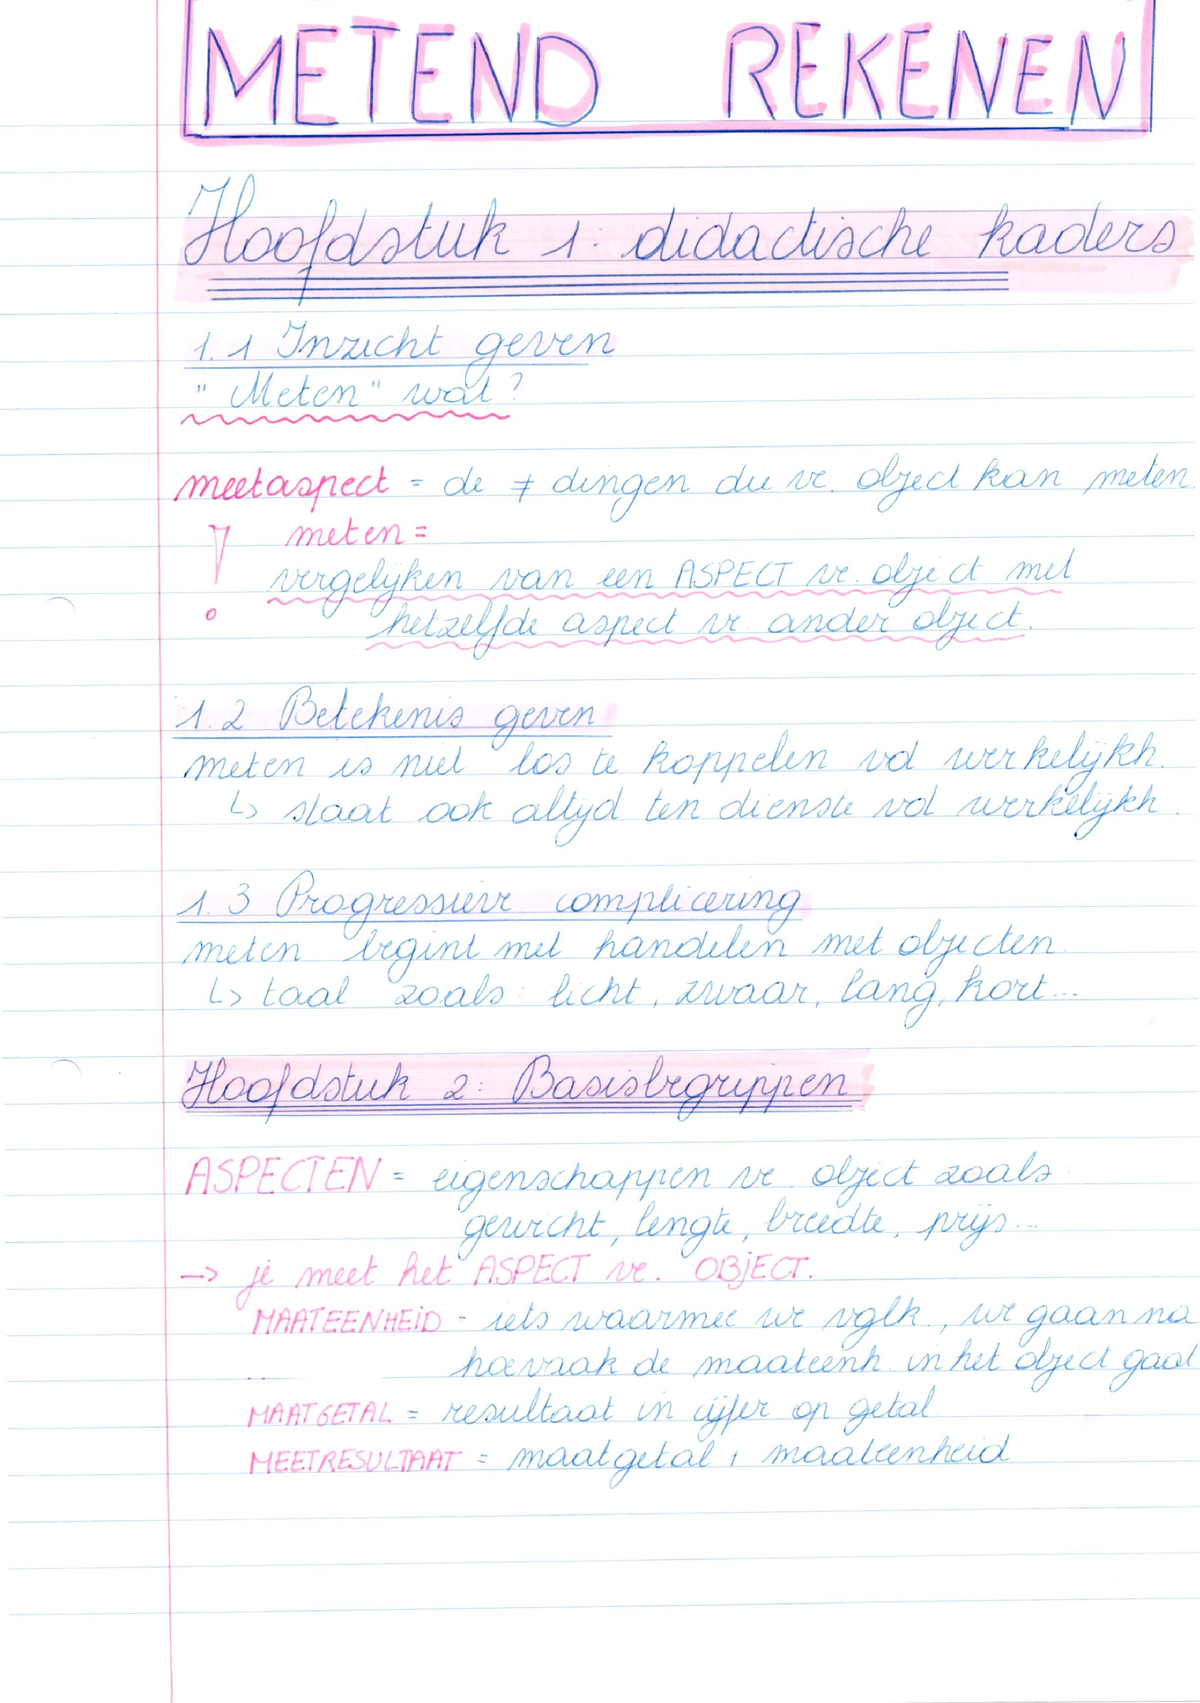 METEND REKENEN
Hoofdstuk 1: didactische kaders
1.1 Inzicht geven
"Meten" wat?
meetaspect = de ≠ dingen die ve. object kan meten.
! meten =
vergelijken van een ASPECT ve. object met
hetzelfde aspect ve. ander object.
1.2 Betekenis geven
meten is niet los te koppelen vd werkelijkh.
↳ staat ook altijd ten dienste vd werkelijkh.
1.3 Progressieve complicering
meten begint met handelen met objecten.
↳ taal zoals: licht, zwaar, lang, kort...
Hoofdstuk 2: Basisbegrippen
ASPECTEN = eigenschappen ve. object zoals
gewicht, lengte, breedte, prijs...
-> je meet het ASPECT ve. OBJECT.
MAATEENHEID = iets waarmee we vglk., we gaan na
hoevaak de maateenh. in het object gaat
MAATGETAL = resultaat in cijfer op getal
MEETRESULTAAT = maatgetal + maateenheid